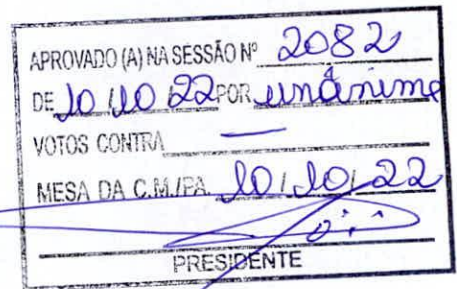 APROVADO (A) NA SESSÃO Nº 2082
DE 10/10/22 POR unânime
VOTOS CONTRA —
MESA DA C.M./PA. 10/10/22
PRESIDENTE